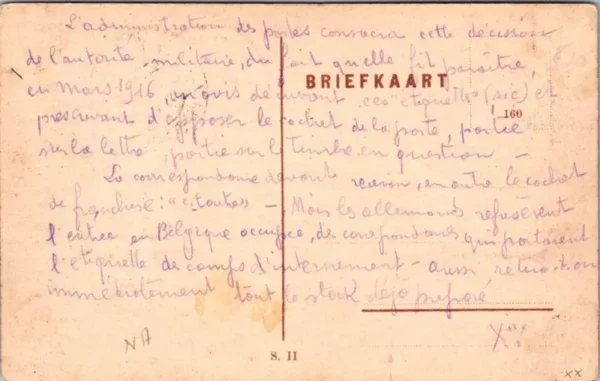 L'administration des postes consacra cette décision
de l'autorité militaire, du fait qu'elle fit paraître,
en Mars 1916, un avis décrivant ces "étiquettes" (sic) et
BRIEFKAART
prescrivant d'apposer le cachet de la poste, partie
160
sur la lettre, partie sur le timbre en question -
La correspondance devant recevoir, en outre le cachet
de franchise : -
Mais les allemands refusèrent
l'entrée en Belgique occupée, des correspondances qui portaient
l'étiquette de camps d'internement - aussi
immédiatement tout le stock déjà préparé
NA
S. II
xx